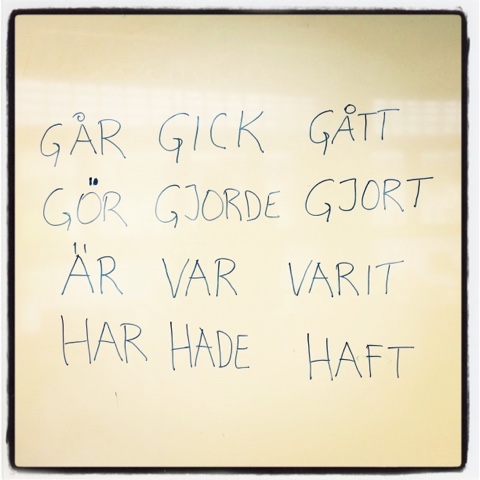 GÅR GICK GÅTT
GÖR GJORDE GJORT
ÄR VAR VARIT
HAR HADE HAFT